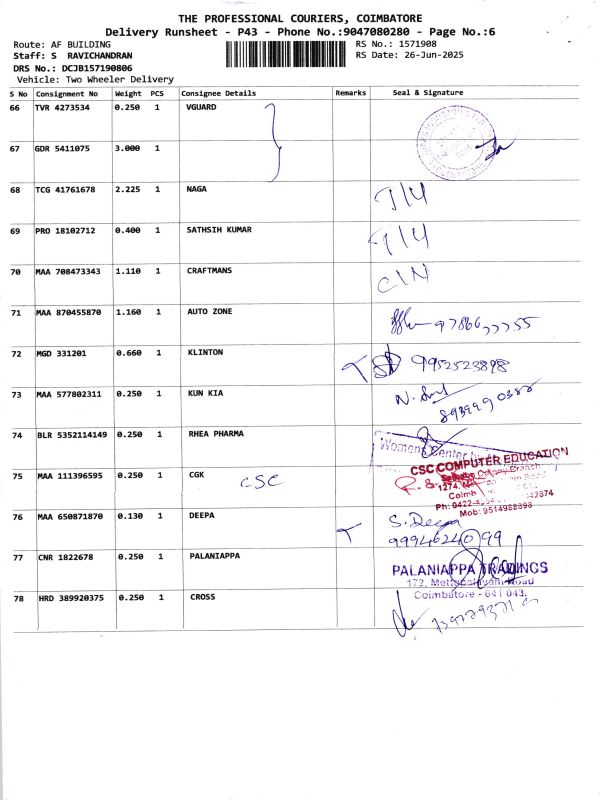 THE PROFESSIONAL COURIERS, COIMBATORE
Delivery Runsheet - P43 - Phone No.:9047080280 - Page No.:6
Route: AF BUILDING RS No.: 1571908
Staff: S RAVICHANDRAN RS Date: 26-Jun-2025
DRS No.: DCJB157190806
Vehicle: Two Wheeler Delivery
S No Consignment No Weight PCS Consignee Details Remarks Seal & Signature
66 TVR 4273534 0.250 1 VGUARD
67 GDR 5411075 3.000 1
68 TCG 41761678 2.225 1 NAGA
69 PRO 18102712 0.400 1 SATHSIH KUMAR
70 MAA 708473343 1.110 1 CRAFTMANS
71 MAA 870455870 1.160 1 AUTO ZONE
72 MGD 331201 0.660 1 KLINTON 9952523898
73 MAA 577802311 0.250 1 KUN KIA
74 BLR 5352114149 0.250 1 RHEA PHARMA
Womens Center
CSC COMPUTER EDUCATION
75 MAA 111396595 0.250 1 CGK CSC
1274,
Coimb
Ph: 0422-
Mob: 9514988898
76 MAA 650871870 0.130 1 DEEPA S. Deepa
9994624099
77 CNR 1822678 0.250 1 PALANIAPPA
PALANIAPPA TRADINGS
172, Mettupalayam Road
Coimbatore - 641 043.
78 HRD 389920375 0.250 1 CROSS